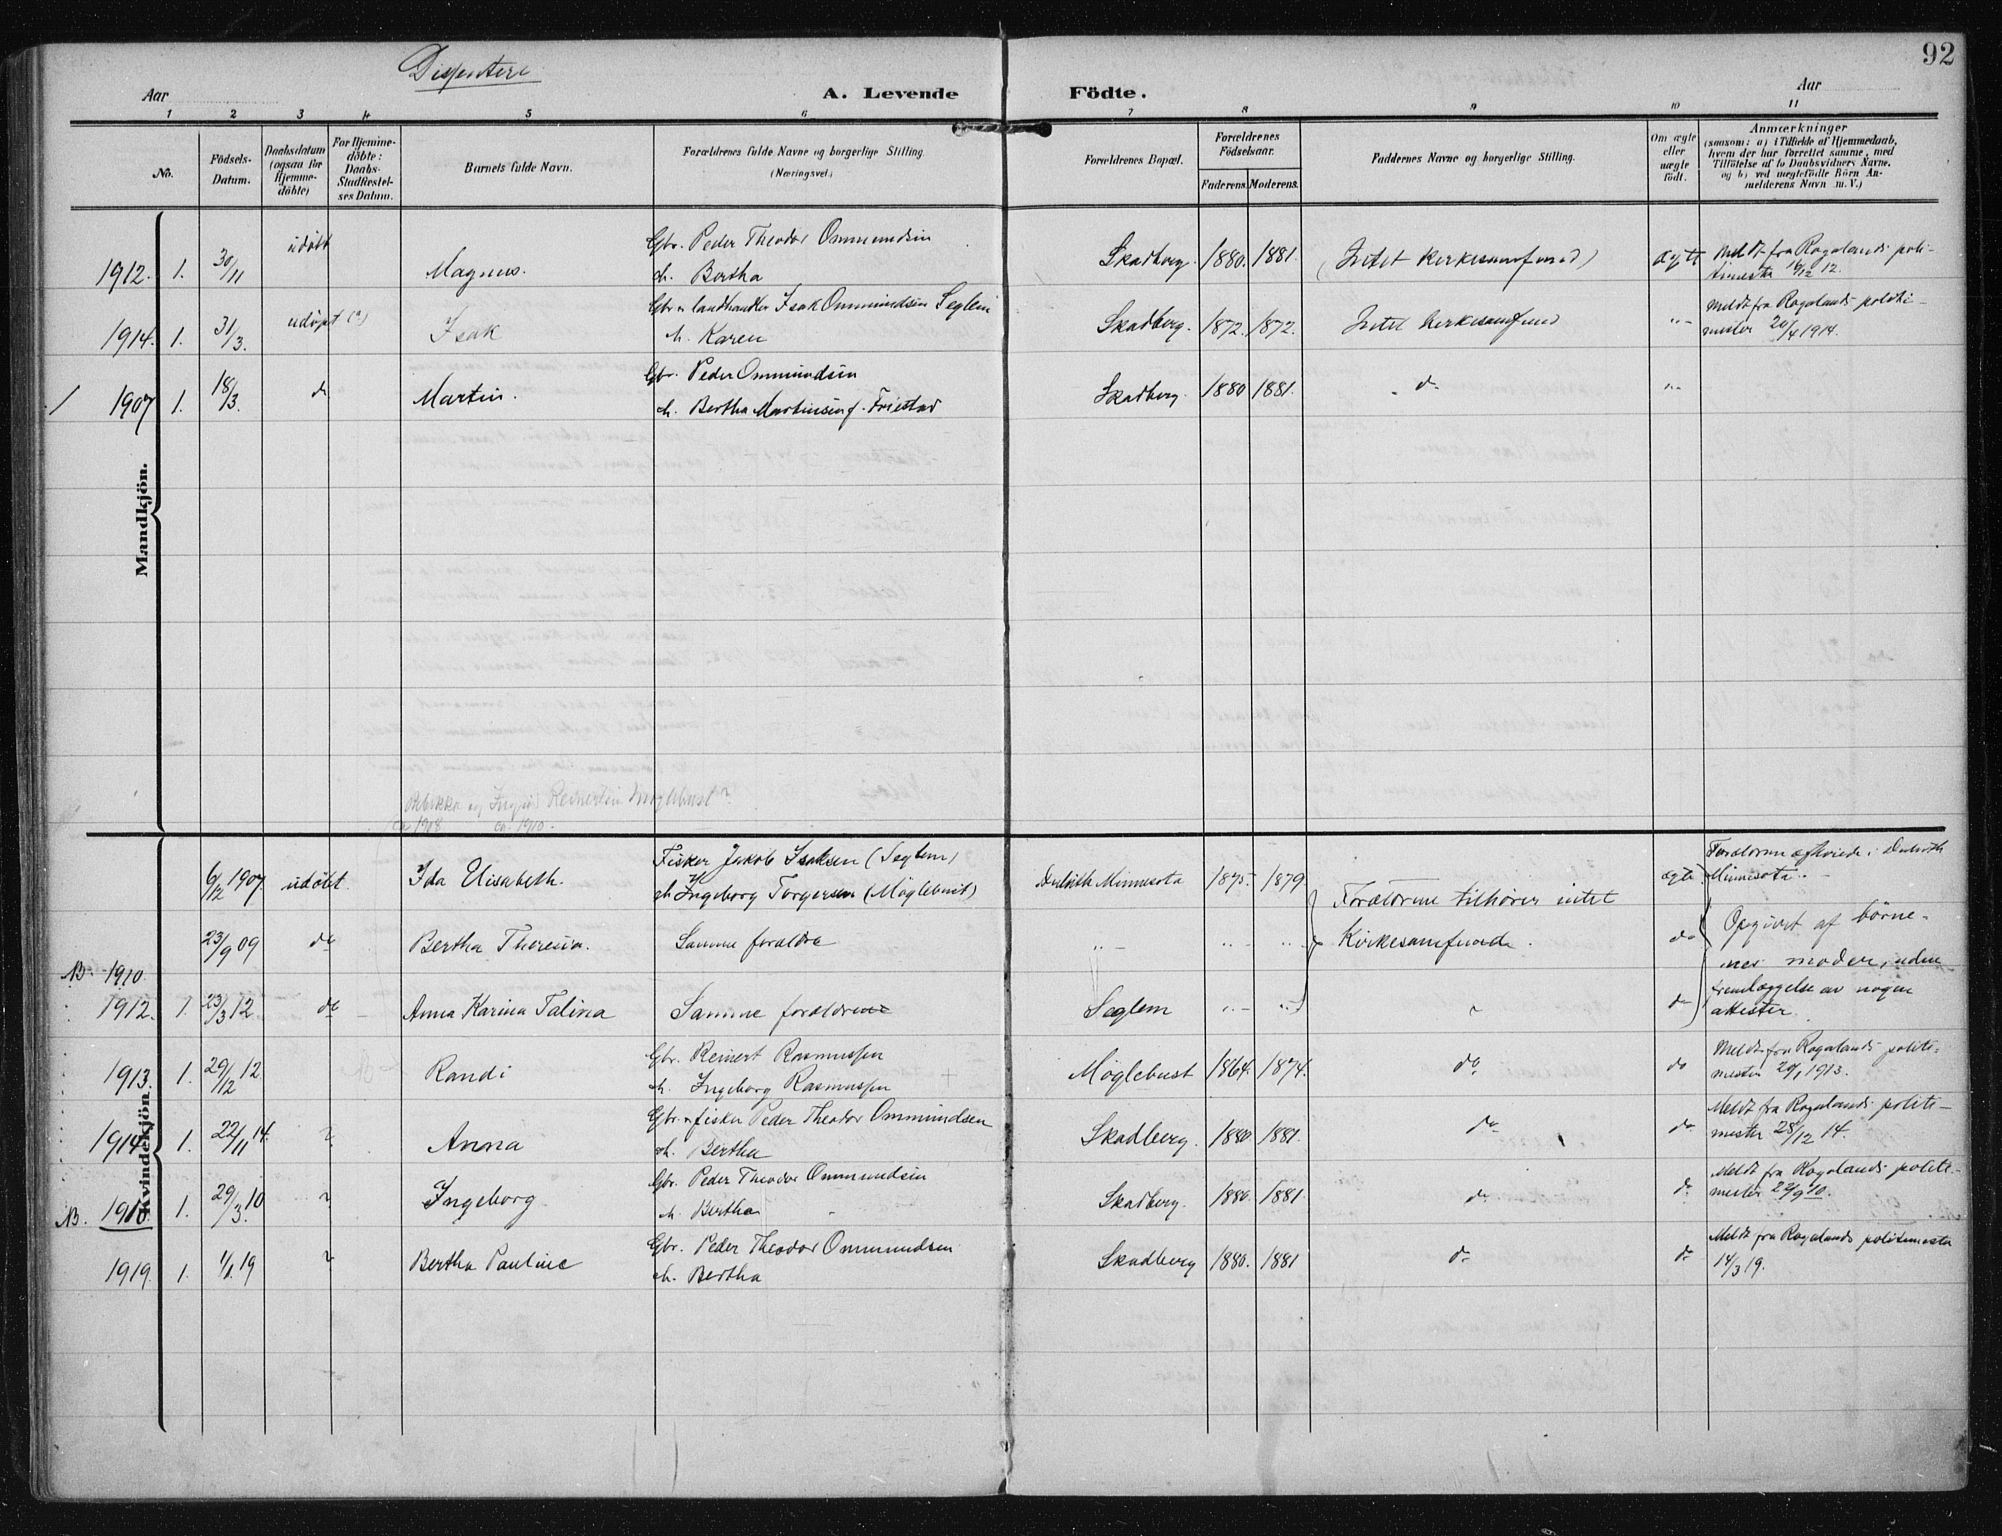 92
Dissentere
Aar
A. Levende Födte.
Aar
1 2 3 4 5 6 7 8 9 10 11
No.
Födsels-
Datum.
Daabsdatum
(ogsaa for
Hjemme-
döbte)
For Hjemme-
döbte:
Daabs-
Stadfæstel-
ses Datum.
Barnets fulde Navn.
Forældrenes fulde Navne og borgerlige Stilling
(Næringsvei.)
Forældrenes Bopæl.
Forældrenes
Födselsaar.
Faderens. Moderens.
Faddernes Navne og borgerlige Stilling.
Om ægte
eller
uægte
födt.
Anmærkninger
(saasom: a) i Tilfælde af Hjemmedaab,
hvem der har forrettet samme, med
Tilföielse af to Daabsvidners Navne.
og b) ved uægtefödte Börn An-
melderens Navn m. V.)
Mandkjön.
1912. 1. 30/11 udöbt Magnus. Gbr. Peder Theodor Ommundsen
h. Bertha Skadberg. 1880. 1881. (Intet Kirkesamfund) ægte Meldt fra Rogalands poli-
timester 16/12 12.
1914. 1. 31/3. udöpt (?) Isak Gbr. & landhandler Isak Ommundsen Seglem
h. Karen Skadberg. 1872. 1872. Intet kirkesamfund "- Meldt fra Rogalands politi-
mester 20/4 1914.
/ 1907 1. 18/3. do Martin. Gbr. Peder Ommundsen
h. Bertha Martinsen f. Friestad Skadberg. 1880 1881. do "-
Rebekka og Ingrid Reinertsen Möglebust?
ca 1908 ca. 1910.
Kvindekjön.
6/12 1907. udöbt. Ida Elisabeth. Fisker Jakob Isaksen (Seglem)
h. Ingeborg Torgersen (Möglebust) Duluth Minnesota 1875. 1879 Forældrene tilhörer intet
Kirkesamfund. ægte. Forældrene afhviede i Duluth
Minnesota.
23/9 09 do Bertha Theresia. Samme forældre "- "- "- do Opgivet af börne-
nes moder, uden
fremlæggelse av nogen
attester.
NB. 1910.
1912. 1. 23/3 12 do Anna Karina Talina Samme forældrene Seglem "- "- " do
1913. 1. 29/12 12 Randi Gbr. Reinert Rasmussen
h. Ingeborg Rasmussen Möglebust 1864. 1874. do do Meldt fra Rogalands politi-
mester 20/1 1913.
1914 1. 22/11 14. " Anna Gbr. & fisker Peder Theodor Ommundsen
h. Bertha Skadberg. 1880 1881. do do Meldt fra Rogalands politi-
mester 28/12 14.
NB. 1910. 1. 29/3. 10 " Ingeborg Gbr. Peder Theodor Ommundsen
h. Bertha Skadberg. 1880. 1881 do do Meldt fra Rogalands politi-
mester 22/9 10.
1919. 1. 1/1. 19 " Bertha Pauline Gbr. Peder Theodor Ommundsen
h. Bertha Skadberg 1880. 1881 do do Meldt fra Rogalands politimester
14/3 19.